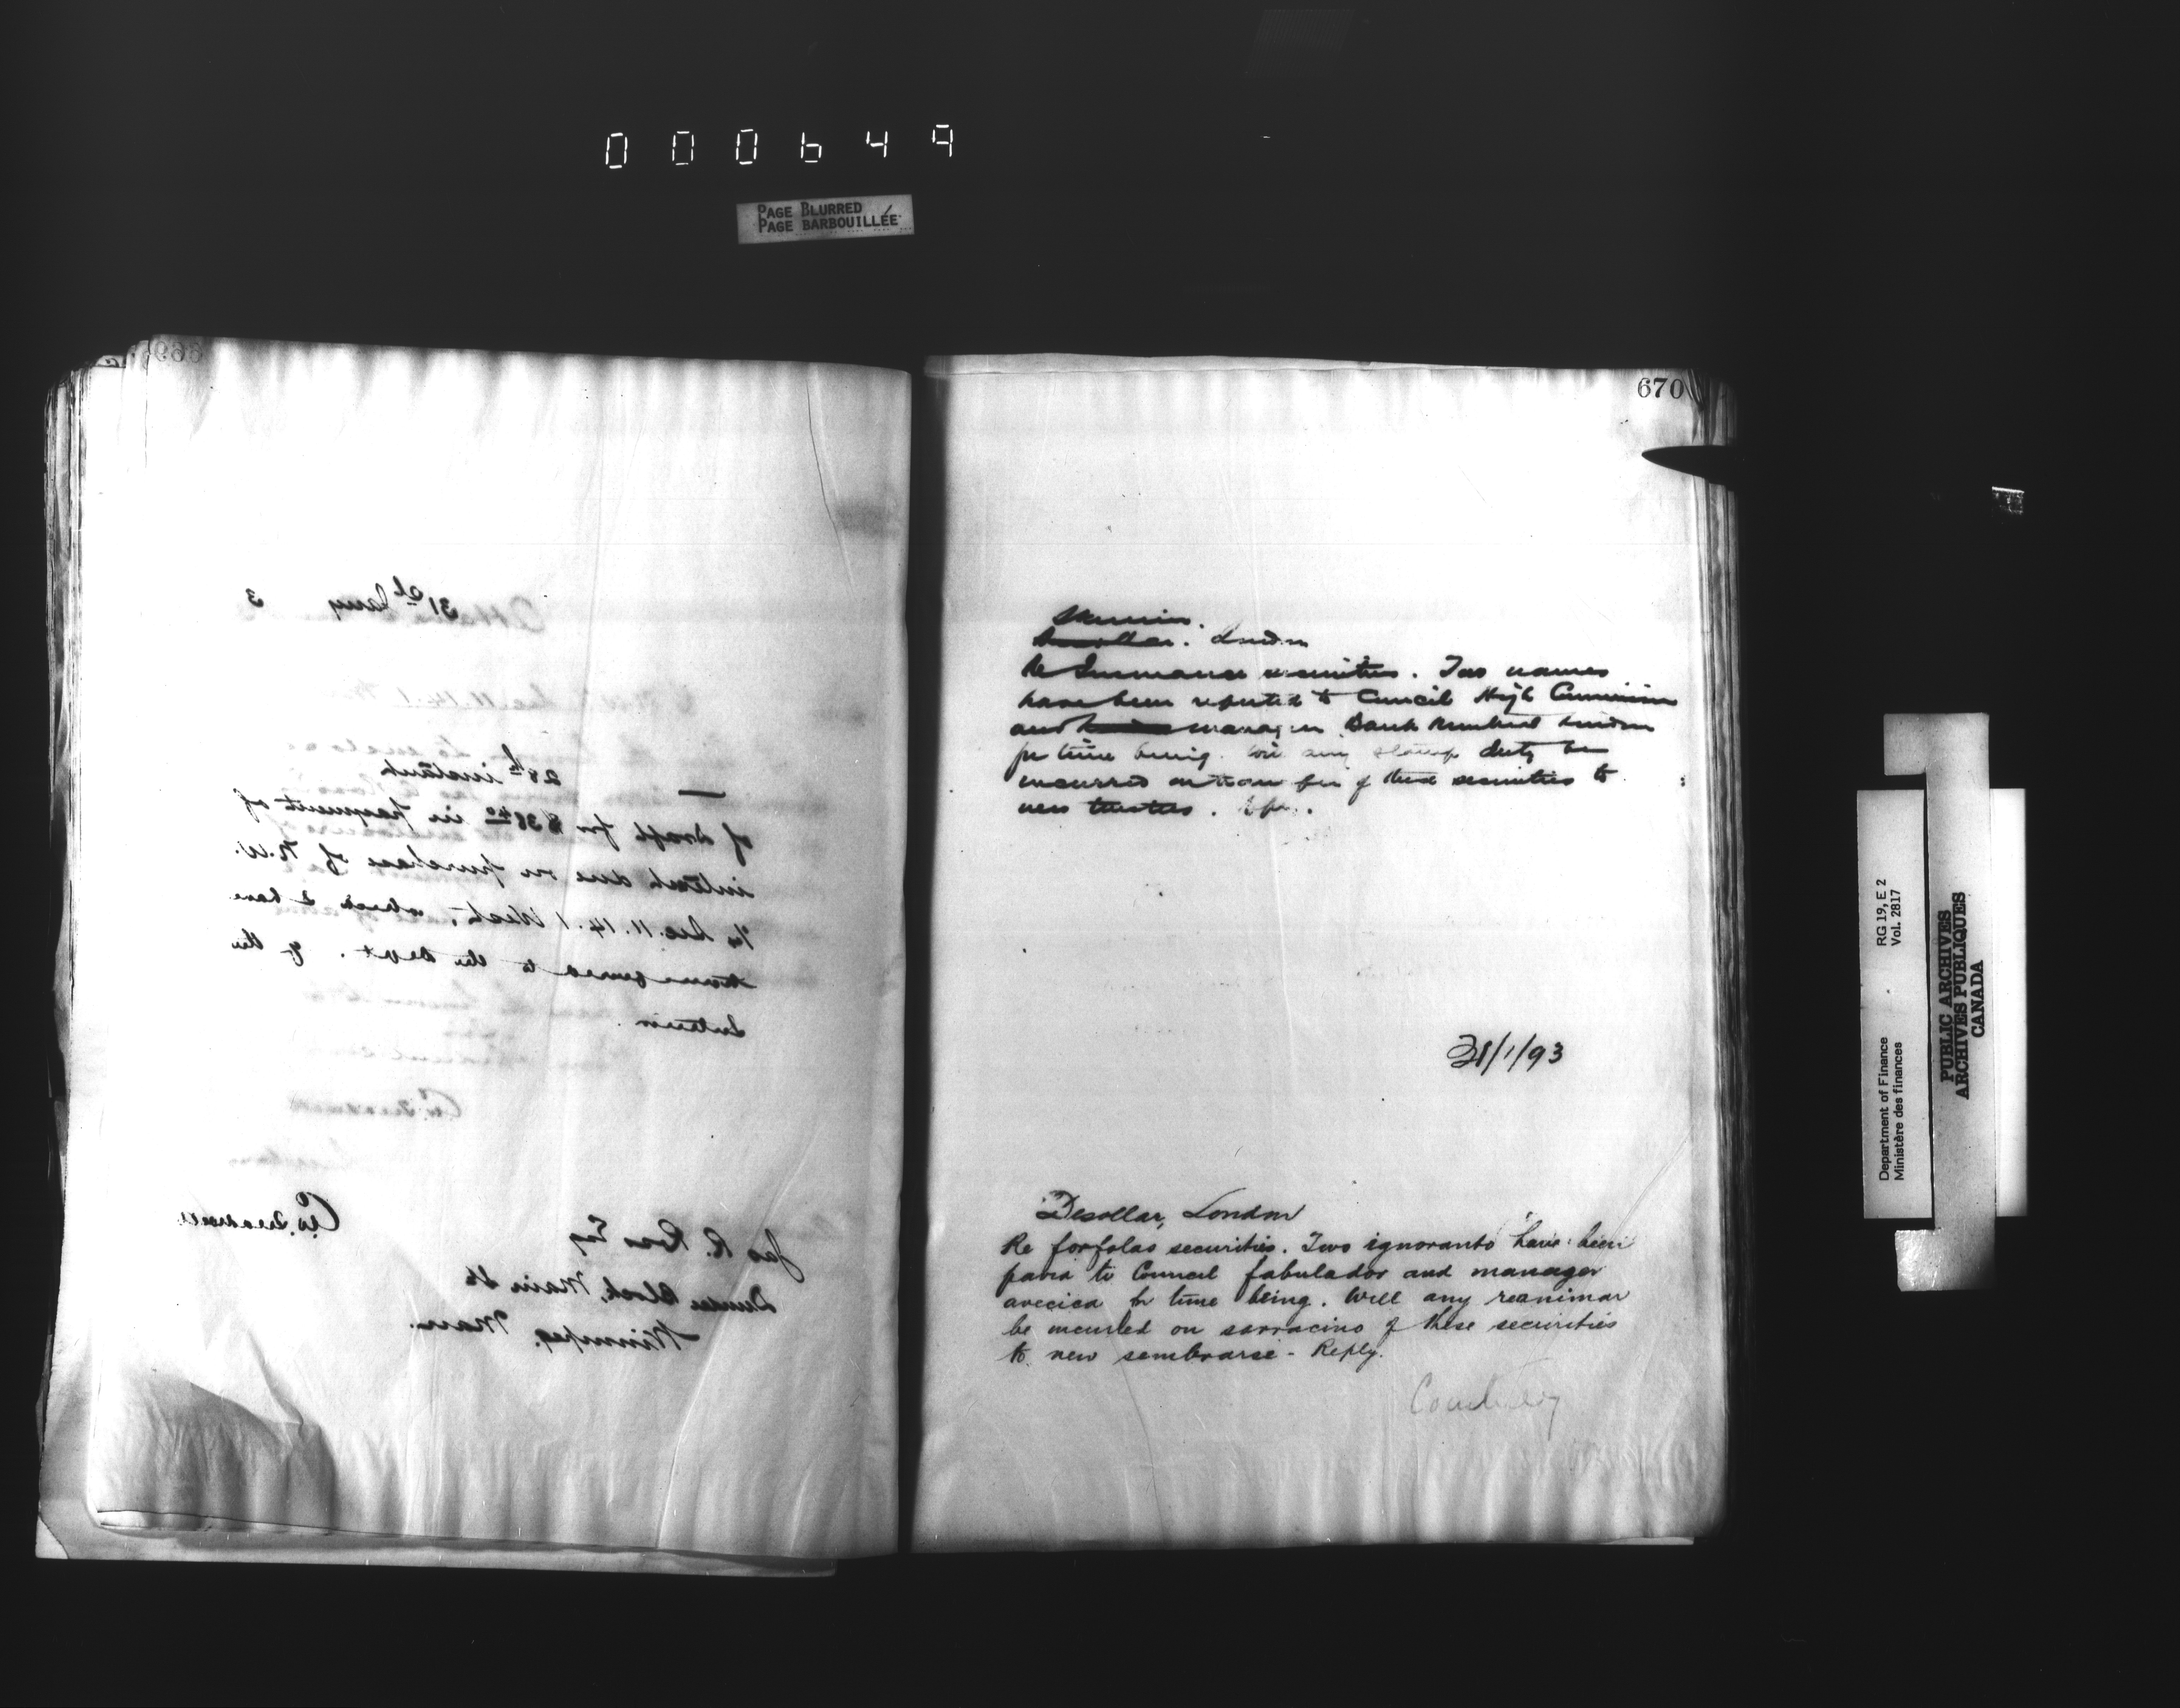 000649
PAGE BLURRED
PAGE BARBOUILLÉE
669
Ottawa 31st Jany 3
28th instant
of draft for $38.40 in payment of
interest due on purchase of N.W.
¼ Sec. 11. 14. 1 West, which I have
transferred to the Dept. of the
Interior.
Jas R. Ross Esq
Dundee Block, Main St
Winnipeg, Man.
670
Skinner.
London
Re Insurance securities. Two names
have been reported to Council High Commission
and manager Bank Montreal London
for time being. Will any stamp duty be
incurred on transfer of these securities to
new trustees. Reply.
31/1/93
Desollar, London
Re forfolas securities. Two ignoranto have been
pavia to Council fabulador and manager
avecica for time being. Will any reanimar
be incurred on sarracino of these securities
to new sembrarse - Reply.
Courtney
Department of Finance RG 19, E 2
Ministère des finances Vol. 2817
PUBLIC ARCHIVES
ARCHIVES PUBLIQUES
CANADA